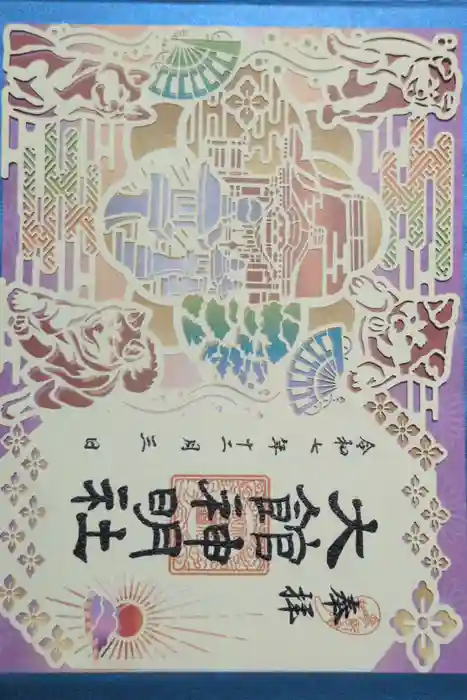 奉拝
大館神明社
令和七年十二月三日